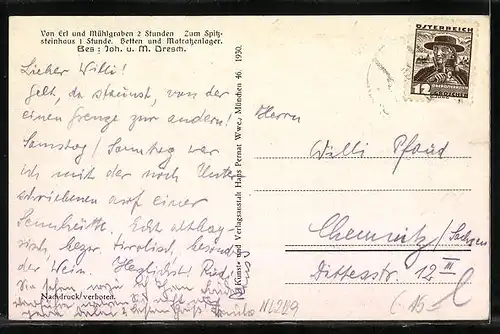 Von Erl und Mühlgraben 2 Stunden   Zum Spitz-
steinhaus 1 Stunde. Betten und Matratzenlager.
Bes: Joh. u. M. Dresm.
Lieber Willi!
Gelt, da staunst, von der
einen Grenze zur andern!
Samstag/Sonntag war
ich mit der noch Unter
schriebenen auf einer
Sennhütte. Echt altbay-
risch, bezw. tirolisch, besond.
der Wein. Herzlichst Rudi
Nachdruck verboten.
Kunst- und Verlagsanstalt Hans Pernat Wwe., München 46. 1930.
ÖSTERREICH
12 GROSCHEN
Herrn
Willi Pfaud
Chemnitz/Sachsen
Dittesstr. 12 III